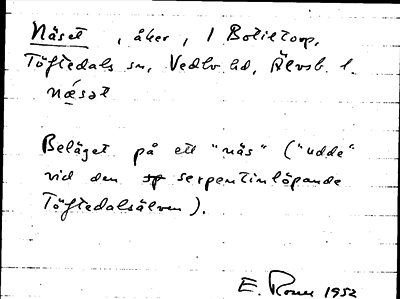 Näset, åker, 1 Botiltorp,
Töftedals sn, Vedbo hd, Älvsb. l.
næ̀sət
Beläget på ett "näs" ("udde"
vid den serpentinlöpande
Töftedalsälven).
E. 1952